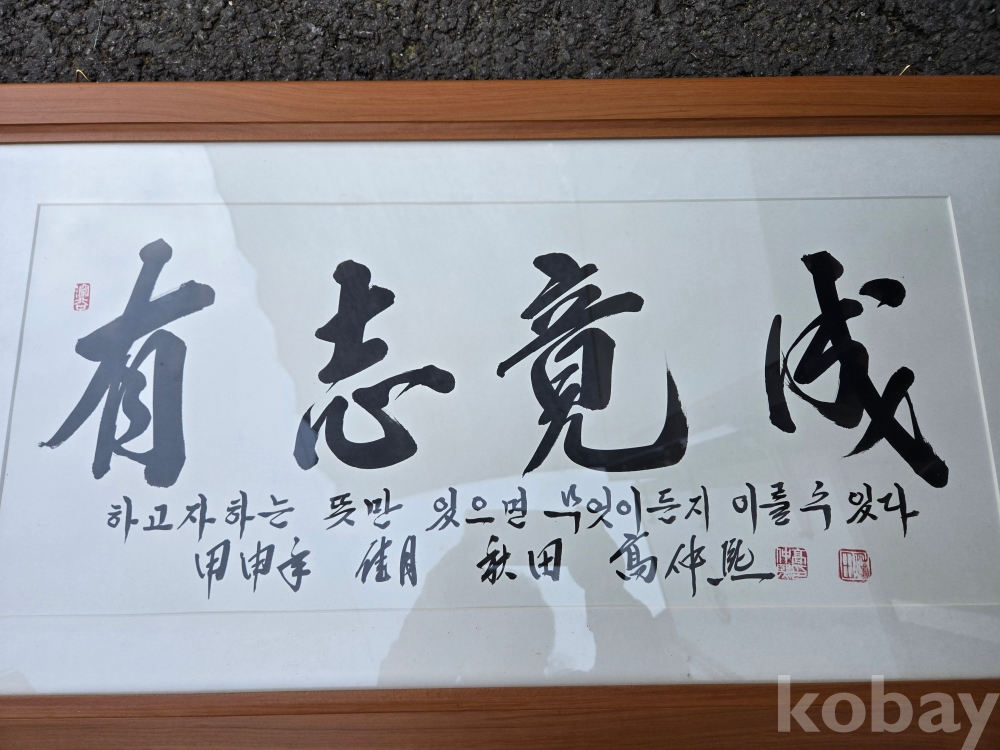 有志竟成
하고자하는 뜻만 있으면 무엇이든지 이룰수 있다
甲申年 佳月 秋田 高仲熙
kobay